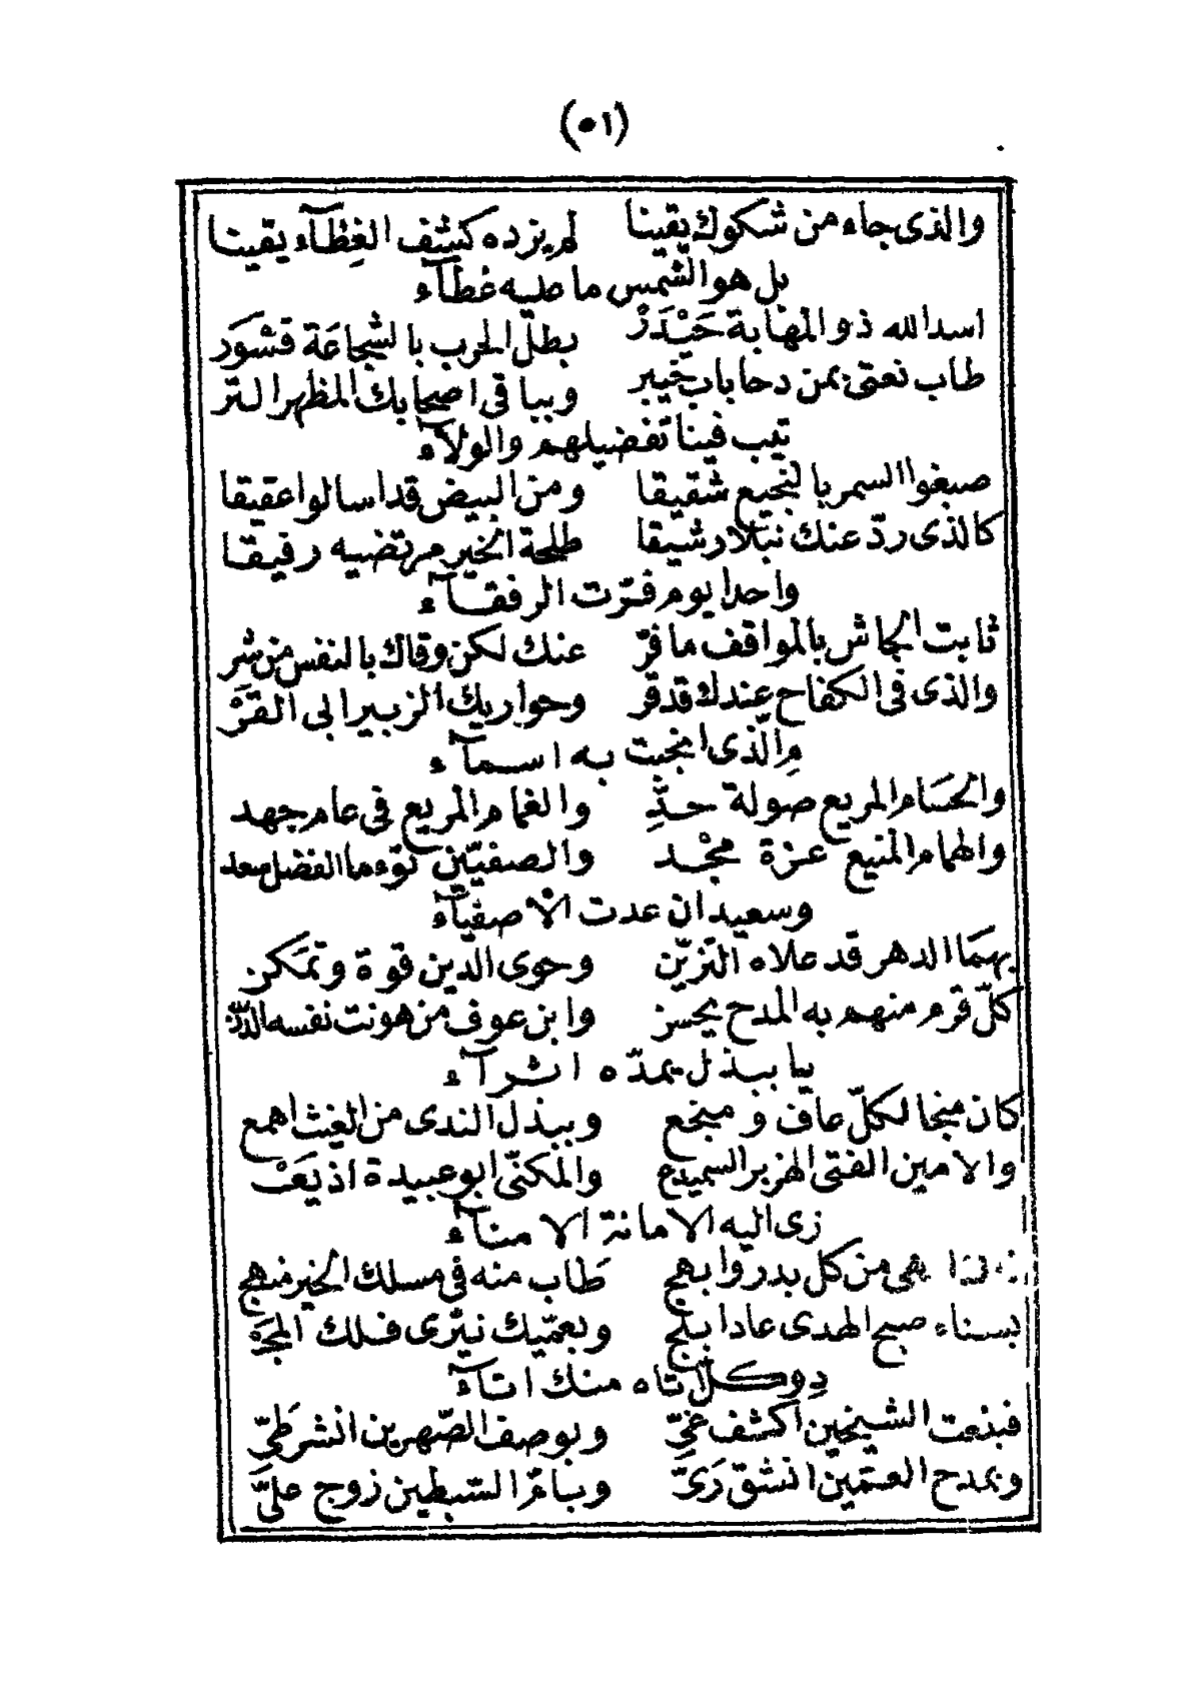 (٥١)
والذى جاء من شكوك يقينا لم يزده كشف الغِطآء يقينا
بل هو الشّمس ما عليه غطآء
اسد الله ذو المهابة حَيْدَرْ بطل الحرب بالشّجاعَة قسْوَر
طاب نعتى بمن دحا باب خيبر وبباقى اصحابك المظهر التر
تيب فينا تفضيلهم والولآء
صبغوا السمر بالنجيع شقيقا ومن البيض قد اسالوا عقيقا
كالذى ردّ عنك نبلا رشيقا طلحة الخير مرتضيه رفيقا
واحدا يوم فرّت الرفقآء
ثابت الجاش بالمواقف ما فرّ عنك لكن وقاك بالنفس من شر
والذى فى الكفاح عندك قد قر وحواريك الزبير ابى القَرْ
مِ الّذى انجبت به اسمآء
والحسَام المريع صولة حدِّ والغمام المريع فى عام جهد
والهمام المنيع عزة مجْد والصفيّين توءم الفضل سعد
وسعيد ان عدت الاصفيآء
بهمَا الدهر قد علاه التزيّن وحوى الدّين قوة وتمَكن
كلّ قرم منهم به المدح يحسن وابن عوف من هونت نفسه الدّن
يا ببذل يمدّه اثرآء
كان منجا لكلّ عاف ومنجع وببذل الندى من الغيث اهمع
والامين الفتى الهزبر السميدع والمكنّى ابو عبيدة اذ يَعْ
زى اليه الامانة الامنآء
هى من كل بدر وابهج طَاب منه فى مسلك الخير منهج
بسناء صبح الهدى عاد ابلج وبعمّيك نيّرى فلك المجَ
دِ وكل اتاه منك اتآء
فبنعت الشيخين اكشف غيّ وبوصف الصّهرين انشر طيّ
وبمدح العمّين انشق رَىّ وبامّ السّبطين زوج علىّ